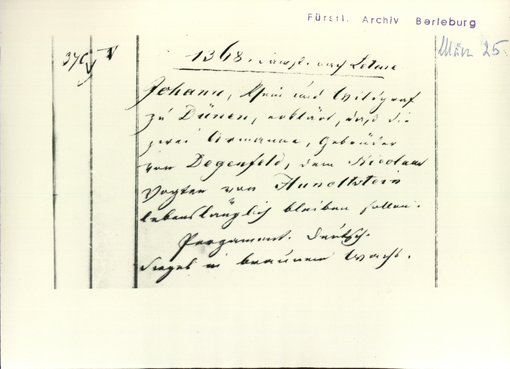 Fürstl. Archiv Berleburg
März 25.
1368. Samst. nach Letare
Johann, Rhein und Wildgraf
zu Dunen, erklärt, daß die
zwei Armanne, Gebrüder
von Degenfeld, dem Nicolaus
Vogten von Hunoltstein
lebenslänglich bleiben sollen.
Pergament. Deutsch.
Siegel in braunem Wachs.